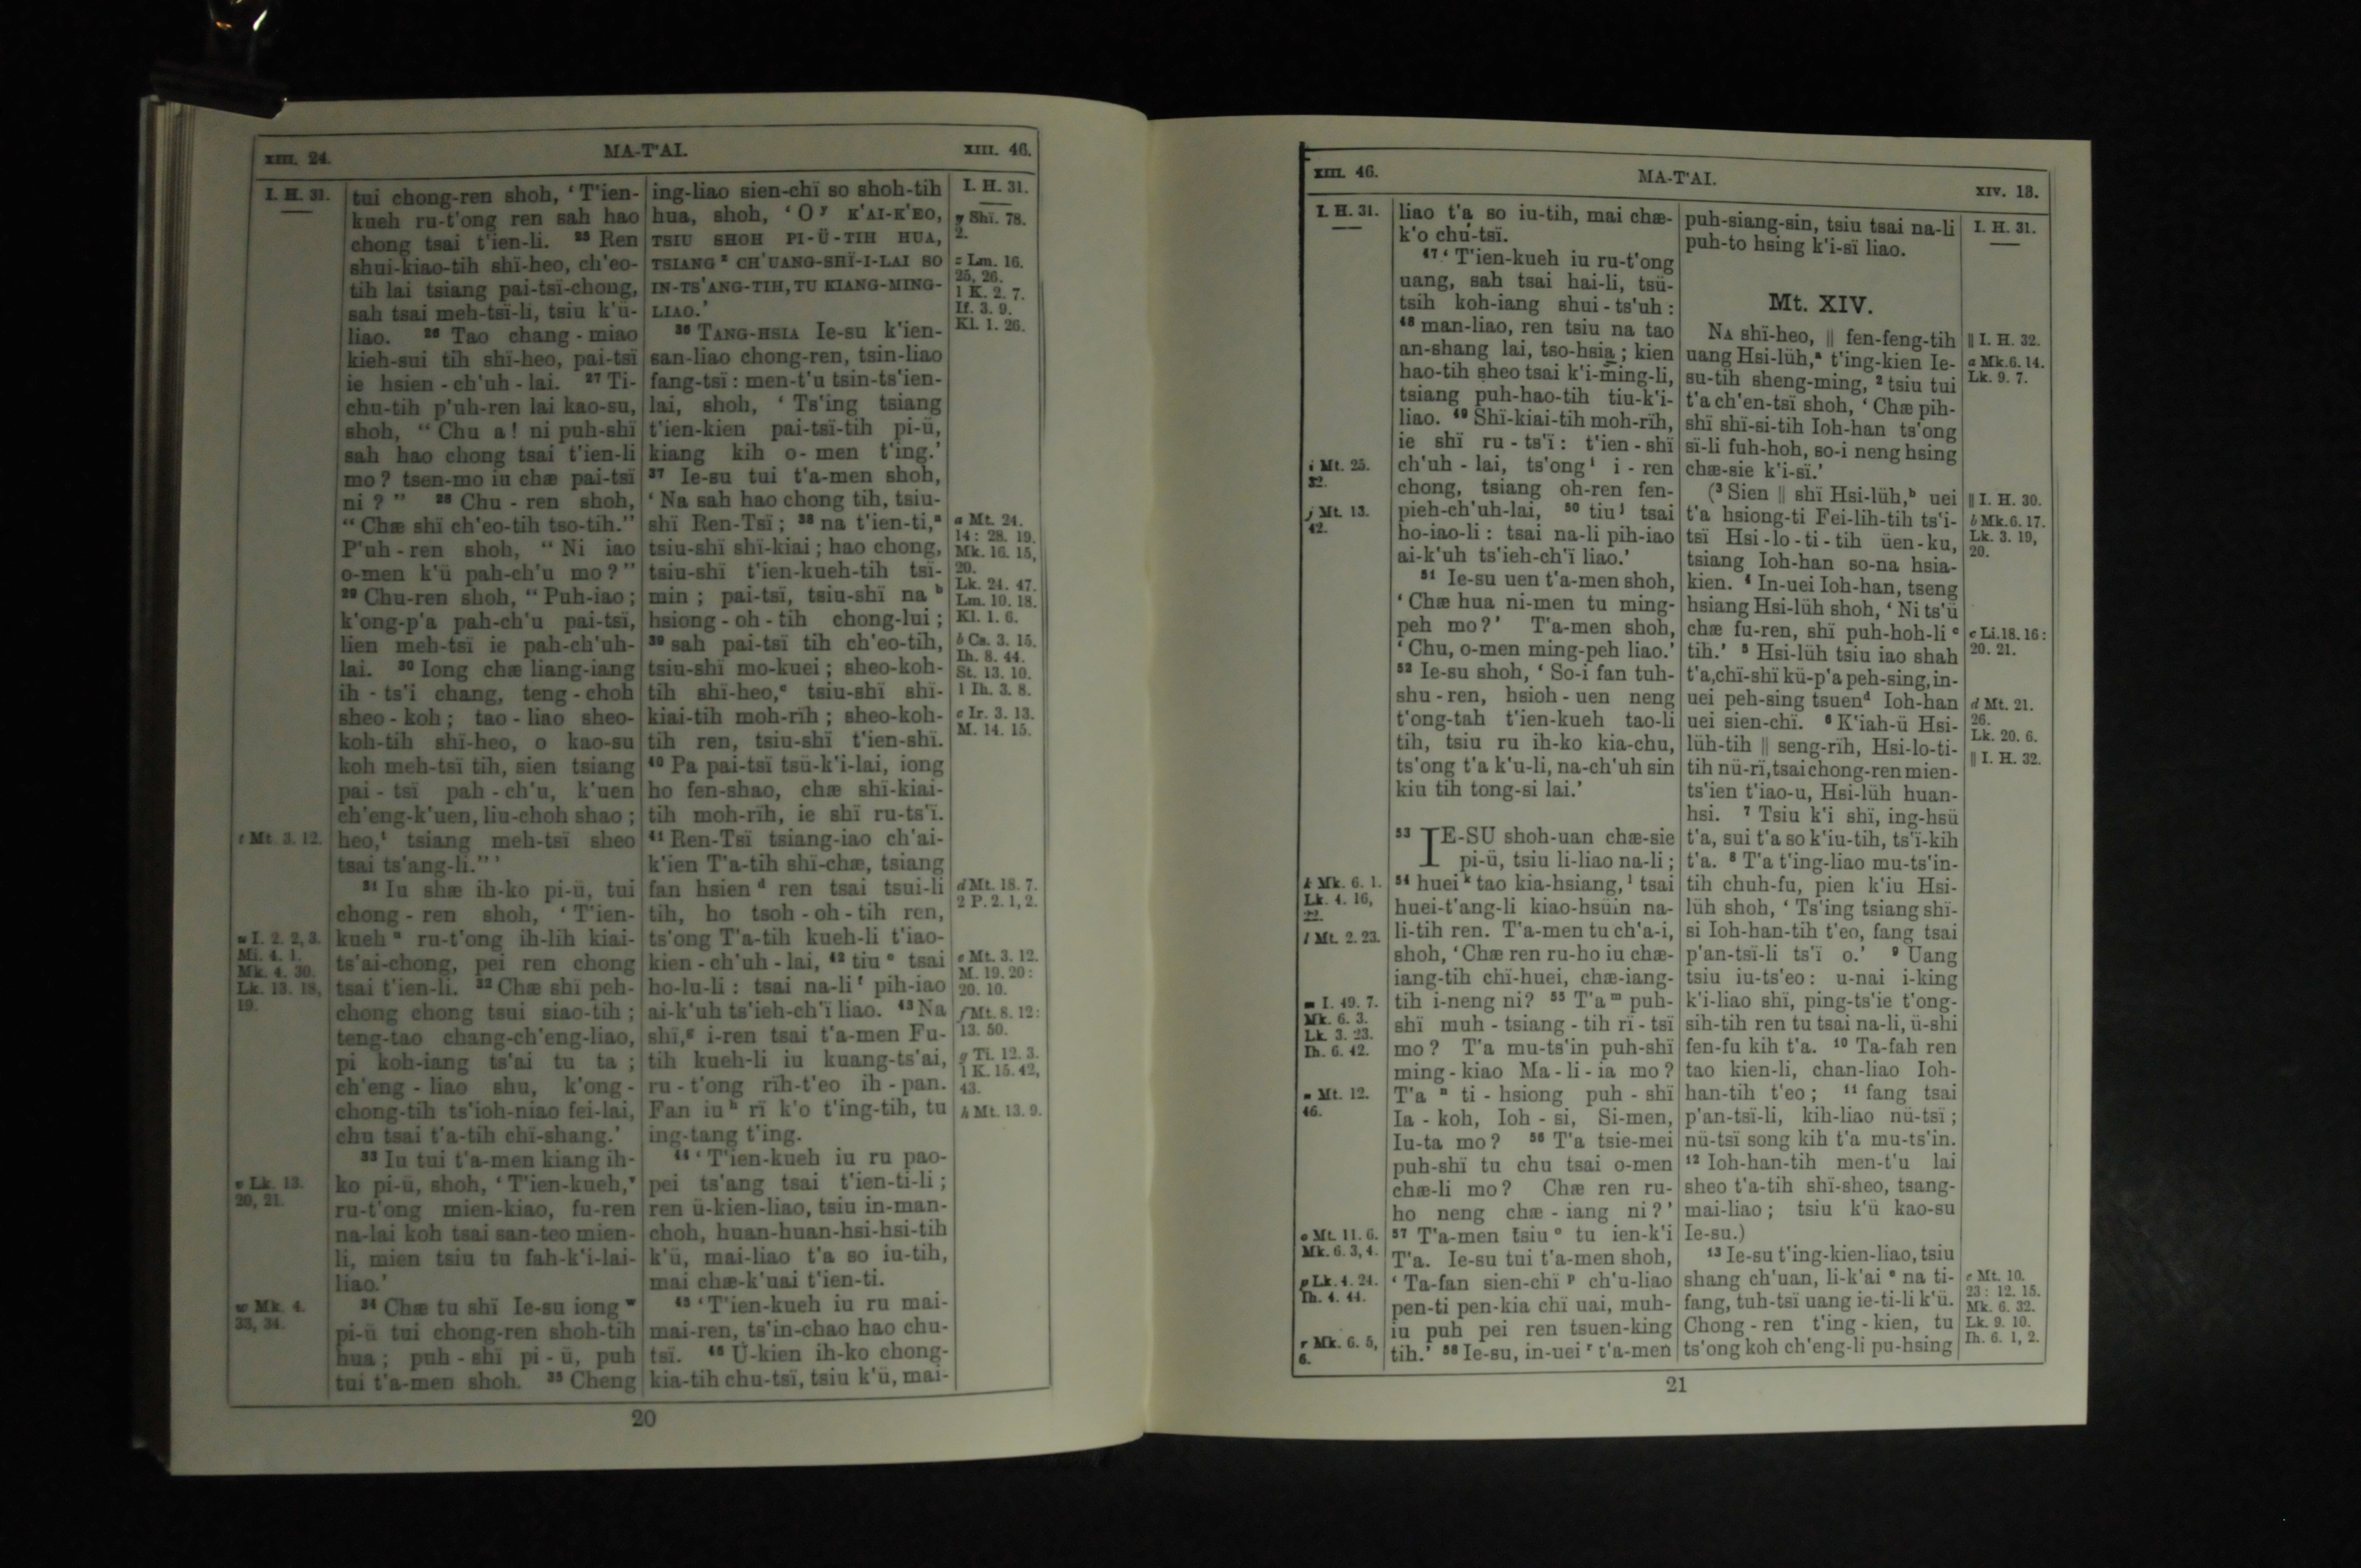 XIII. 24.
MA-T'AI.
XIII. 46.
I. H. 31.
t Mt. 3. 12.
u I. 2. 2, 3.
Mi. 4. 1.
Mk. 4. 30.
Lk. 13. 18,
19.
v Lk. 13.
20, 21.
w Mk. 4.
33, 34.
tui chong-ren shoh, ‘T'ien-
kueh ru-t'ong ren sah hao
chong tsai t'ien-li. 25 Ren
shui-kiao-tih shï-heo, ch'eo-
tih lai tsiang pai-tsï-chong,
sah tsai meh-tsï-li, tsiu k'ü-
liao. 26 Tao chang-miao
kieh-sui tih shï-heo, pai-tsï
ie hsien-ch'uh-lai. 27 Ti-
chu-tih p'uh-ren lai kao-su,
shoh, “Chu a! ni puh-shï
sah hao chong tsai t'ien-li
mo? tsen-mo iu chæ pai-tsï
ni?” 28 Chu-ren shoh,
“Chæ shï ch'eo-tih tso-tih.”
P'uh-ren shoh, “Ni iao
o-men k'ü pah-ch'u mo?”
29 Chu-ren shoh, “Puh-iao;
k'ong-p'a pah-ch'u pai-tsï,
lien meh-tsï ie pah-ch'uh-
lai. 30 Iong chæ liang-iang
ih-ts'i chang, teng-choh
sheo-koh; tao-liao sheo-
koh-tih shï-heo, o kao-su
koh meh-tsï tih, sien tsiang
pai-tsï pah-ch'u, k'uen
ch'eng-k'uen, liu-choh shao;
heo,t tsiang meh-tsï sheo
tsai ts'ang-li.”’
31 Iu shæ ih-ko pi-ü, tui
chong-ren shoh, ‘T'ien-
kueh u ru-t'ong ih-lih kiai-
ts'ai-chong, pei ren chong
tsai t'ien-li. 32 Chæ shï peh-
chong chong tsui siao-tih;
teng-tao chang-ch'eng-liao,
pi koh-iang ts'ai tu ta;
ch'eng-liao shu, k'ong-
chong-tih ts'ioh-niao fei-lai,
chu tsai t'a-tih chï-shang.’
33 Iu tui t'a-men kiang ih-
ko pi-ü, shoh, ‘T'ien-kueh,v
ru-t'ong mien-kiao, fu-ren
na-lai koh tsai san-teo mien-
li, mien tsiu tu fah-k'i-lai-
liao.’
34 Chæ tu shï Ie-su iong w
pi-ü tui chong-ren shoh-tih
hua; puh-shï pi-ü, puh
tui t'a-men shoh. 35 Cheng
ing-liao sien-chï so shoh-tih
hua, shoh, ‘O y K'AI-K'EO,
TSIU SHOH PI-Ü-TIH HUA,
TSIANG z CH'UANG-SHÏ-I-LAI SO
IN-TS'ANG-TIH, TU KIANG-MING-
LIAO.’
36 TANG-HSIA Ie-su k'ien-
san-liao chong-ren, tsin-liao
fang-tsï: men-t'u tsin-ts'ien-
lai, shoh, ‘Ts'ing tsiang
t'ien-kien pai-tsï-tih pi-ü,
kiang kih o-men t'ing.’
37 Ie-su tui t'a-men shoh,
‘Na sah hao chong tih, tsiu-
shï Ren-Tsï; 38 na t'ien-ti,a
tsiu-shï shï-kiai; hao chong,
tsiu-shï t'ien-kueh-tih tsï-
min; pai-tsï, tsiu-shï na b
hsiong-oh-tih chong-lui;
39 sah pai-tsï tih ch'eo-tih,
tsiu-shï mo-kuei; sheo-koh-
tih shï-heo,c tsiu-shï shï-
kiai-tih moh-rïh; sheo-koh-
tih ren, tsiu-shï t'ien-shï.
40 Pa pai-tsï tsü-k'i-lai, iong
ho fen-shao, chæ shï-kiai-
tih moh-rïh, ie shï ru-ts'ï.
41 Ren-Tsï tsiang-iao ch'ai-
k'ien T'a-tih shï-chæ, tsiang
fan hsien d ren tsai tsui-li
tih, ho tsoh-oh-tih ren,
ts'ong T'a-tih kueh-li t'iao-
kien-ch'uh-lai, 42 tiu e tsai
ho-lu-li: tsai na-li f pih-iao
ai-k'uh ts'ieh-ch'ï liao. 43 Na
shï,g i-ren tsai t'a-men Fu-
tih kueh-li iu kuang-ts'ai,
ru-t'ong rïh-t'eo ih-pan.
Fan iu h rï k'o t'ing-tih, tu
ing-tang t'ing.
44 ‘T'ien-kueh iu ru pao-
pei ts'ang tsai t'ien-ti-li;
ren ü-kien-liao, tsiu in-man-
choh, huan-huan-hsi-hsi-tih
k'ü, mai-liao t'a so iu-tih,
mai chæ-k'uai t'ien-ti.
45 ‘T'ien-kueh iu ru mai-
mai-ren, ts'in-chao hao chu-
tsï. 46 Ü-kien ih-ko chong-
kia-tih chu-tsï, tsiu k'ü, mai-
I. H. 31.
y Shï. 78.
2.
z Lm. 16.
25, 26.
1 K. 2. 7.
If. 3. 9.
Kl. 1. 26.
a Mt. 24.
14: 28. 19.
Mk. 16. 15,
20.
Lk. 24. 47.
Lm. 10. 18.
Kl. 1. 6.
b Cs. 3. 15.
Ih. 8. 44.
St. 13. 10.
1 Ih. 3. 8.
c Ir. 3. 13.
M. 14. 15.
d Mt. 18. 7.
2 P. 2. 1, 2.
e Mt. 3. 12.
M. 19. 20:
20. 10.
f Mt. 8. 12:
13. 50.
g Ti. 12. 3.
1 K. 15. 42,
43.
h Mt. 13. 9.
20
XIII. 46.
MA-T'AI.
XIV. 18.
I. H. 31.
i Mt. 25.
32.
j Mt. 13.
42.
k Mk. 6. 1.
Lk. 4. 16,
22.
l Mt. 2. 23.
m I. 49. 7.
Mk. 6. 3.
Lk. 3. 23.
Ih. 6. 42.
n Mt. 12.
46.
o Mt. 11. 6.
Mk. 6. 3, 4.
p Lk. 4. 24.
Ih. 4. 44.
r Mk. 6. 5,
6.
liao t'a so iu-tih, mai chæ-
k'o chu-tsï.
47 ‘T'ien-kueh iu ru-t'ong
uang, sah tsai hai-li, tsü-
tsih koh-iang shui-ts'uh:
48 man-liao, ren tsiu na tao
an-shang lai, tso-hsia; kien
hao-tih sheo tsai k'i-ming-li,
tsiang puh-hao-tih tiu-k'i-
liao. 49 Shï-kiai-tih moh-rïh,
ie shï ru-ts'ï: t'ien-shï
ch'uh-lai, ts'ong i i-ren
chong, tsiang oh-ren fen-
pieh-ch'uh-lai, 50 tiu j tsai
ho-iao-li: tsai na-li pih-iao
ai-k'uh ts'ieh-ch'ï liao.’
51 Ie-su uen t'a-men shoh,
‘Chæ hua ni-men tu ming-
peh mo?’ T'a-men shoh,
‘Chu, o-men ming-peh liao.’
52 Ie-su shoh, ‘So-i fan tuh-
shu-ren, hsioh-uen neng
t'ong-tah t'ien-kueh tao-li
tih, tsiu ru ih-ko kia-chu,
ts'ong t'a k'u-li, na-ch'uh sin
kiu tih tong-si lai.’
53 IE-SU shoh-uan chæ-sie
pi-ü, tsiu li-liao na-li;
54 huei k tao kia-hsiang,l tsai
huei-t'ang-li kiao-hsüin na-
li-tih ren. T'a-men tu ch'a-i,
shoh, ‘Chæ ren ru-ho iu chæ-
iang-tih chï-huei, chæ-iang-
tih i-neng ni? 55 T'a m puh-
shï muh-tsiang-tih rï-tsï
mo? T'a mu-ts'in puh-shï
ming-kiao Ma-li-ia mo?
T'a n ti-hsiong puh-shï
Ia-koh, Ioh-si, Si-men,
Iu-ta mo? 56 T'a tsie-mei
puh-shï tu chu tsai o-men
chæ-li mo? Chæ ren ru-
ho neng chæ-iang ni?’
57 T'a-men tsiu o tu ien-k'i
T'a. Ie-su tui t'a-men shoh,
‘Ta-fan sien-chï p ch'u-liao
pen-ti pen-kia chï uai, muh-
iu puh pei ren tsuen-king
tih.’ 58 Ie-su, in-uei r t'a-men
puh-siang-sin, tsiu tsai na-li
puh-to hsing k'i-sï liao.
Mt. XIV.
NA shï-heo, || fen-feng-tih
uang Hsi-lüh,a t'ing-kien Ie-
su-tih sheng-ming, 2 tsiu tui
t'a ch'en-tsï shoh, ‘Chæ pih-
shï shï-si-tih Ioh-han ts'ong
sï-li fuh-hoh, so-i neng hsing
chæ-sie k'i-sï.’
(3 Sien || shï Hsi-lüh,b uei
t'a hsiong-ti Fei-lih-tih ts'i-
tsï Hsi-lo-ti-tih üen-ku,
tsiang Ioh-han so-na hsia-
kien. 4 In-uei Ioh-han, tseng
hsiang Hsi-lüh shoh, ‘Ni ts'ü
chæ fu-ren, shï puh-hoh-li c
tih.’ 5 Hsi-lüh tsiu iao shah
t'a, chï-shï kü-p'a peh-sing, in-
uei peh-sing tsuen d Ioh-han
uei sien-chï. 6 K'iah-ü Hsi-
lüh-tih || seng-rïh, Hsi-lo-ti-
tih nü-rï, tsai chong-ren mien-
ts'ien t'iao-u, Hsi-lüh huan-
hsi. 7 Tsiu k'i shï, ing-hsü
t'a, sui t'a so k'iu-tih, ts'ï-kih
t'a. 8 T'a t'ing-liao mu-ts'in-
tih chuh-fu, pien k'iu Hsi-
lüh shoh, ‘Ts'ing tsiang shï-
si Ioh-han-tih t'eo, fang tsai
p'an-tsï-li ts'ï o.’ 9 Uang
tsiu iu-ts'eo: u-nai i-king
k'i-liao shï, ping-ts'ie t'ong-
sih-tih ren tu tsai na-li, ü-shi
fen-fu kih t'a. 10 Ta-fah ren
tao kien-li, chan-liao Ioh-
han-tih t'eo; 11 fang tsai
p'an-tsï-li, kih-liao nü-tsï;
nü-tsï song kih t'a mu-ts'in.
12 Ioh-han-tih men-t'u lai
sheo t'a-tih shï-sheo, tsang-
mai-liao; tsiu k'ü kao-su
Ie-su.)
13 Ie-su t'ing-kien-liao, tsiu
shang ch'uan, li-k'ai e na ti-
fang, tuh-tsï uang ie-ti-li k'ü.
Chong-ren t'ing-kien, tu
ts'ong koh ch'eng-li pu-hsing
I. H. 31.
|| I. H. 32.
a Mk. 6. 14.
Lk. 9. 7.
|| I. H. 30.
b Mk. 6. 17.
Lk. 3. 19,
20.
c Li. 18. 16:
20. 21.
d Mt. 21.
26.
Lk. 20. 6.
|| I. H. 32.
e Mt. 10.
23: 12. 15.
Mk. 6. 32.
Lk. 9. 10.
Ih. 6. 1, 2.
21